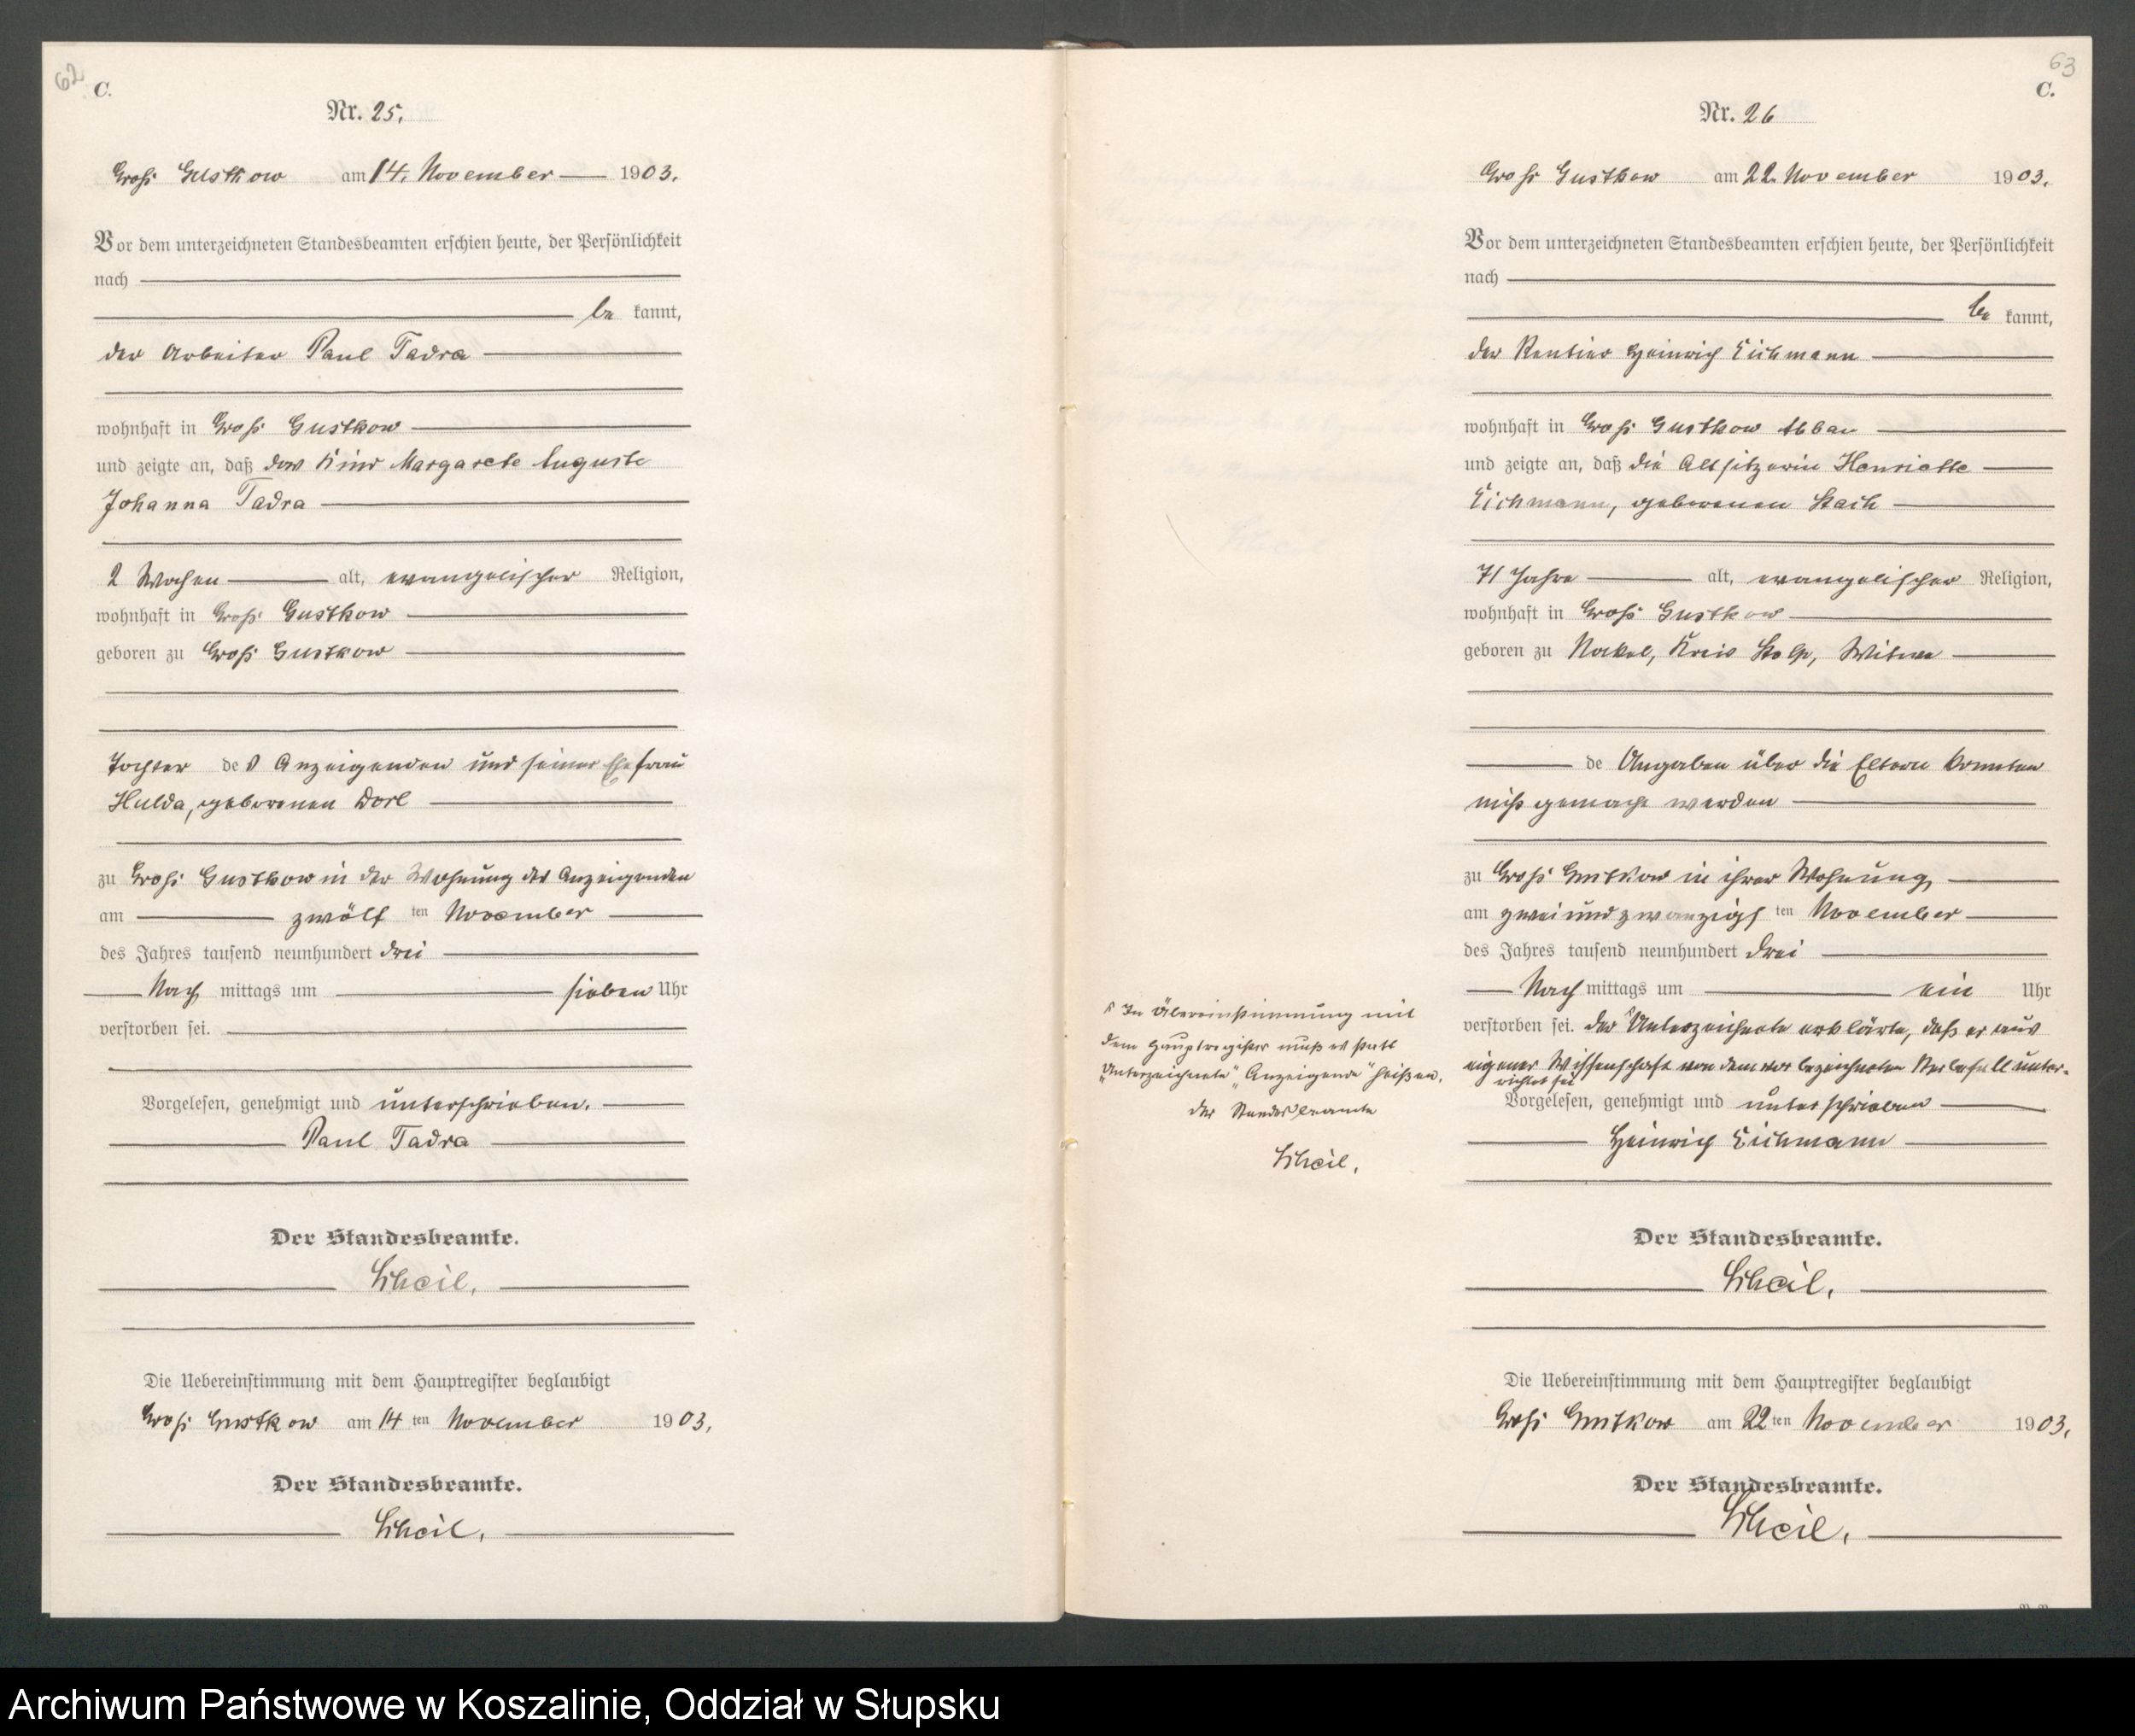 62
C.
Nr. 25.
Groß Gustkow am 14. November 1903.
Vor dem unterzeichneten Standesbeamten erschien heute, der Persönlichkeit
nach
be kannt,
der Arbeiter Paul Tadra
wohnhaft in Groß Gustkow
und zeigte an, daß das Kind Margarete Auguste
Johanna Tadra
2 Wochen alt, evangelischer Religion,
wohnhaft in Groß Gustkow
geboren zu Groß Gustkow
Tochter des Anzeigenden und seiner Ehefrau
Hulda, geborenen Dorl
zu Groß Gustkow in der Wohnung des Anzeigenden
am zwölf ten November
des Jahres tausend neunhundert drei
Nach mittags um sieben Uhr
verstorben sei.
Vorgelesen, genehmigt und unterschrieben.
Paul Tadra
Der Standesbeamte.
Scheil.
Die Uebereinstimmung mit dem Hauptregister beglaubigt
Groß Gustkow am 14 ten November 1903.
Der Standesbeamte.
Scheil.
63
C.
Nr. 26
Groß Gustkow am 22. November 1903.
Vor dem unterzeichneten Standesbeamten erschien heute, der Persönlichkeit
nach
be kannt,
der Rentier Heinrich Eichmann
wohnhaft in Groß Gustkow Abbau
und zeigte an, daß die Altsitzerin Henriette
Eichmann, geborenen Stach
71 Jahre alt, evangelischer Religion,
wohnhaft in Groß Gustkow
geboren zu Nockel, Kreis Stolp, Witwe
de Angaben über die Eltern konnten
nicht gemacht werden
zu Groß Gustkow in ihrer Wohnung
am zwei und zwanzigs ten November
des Jahres tausend neunhundert drei
Nach mittags um ein Uhr
verstorben sei. Der Unterzeichnete erklärte, daß er aus
eigener Wissenschaft von dem vor bezeichneten Sterbefall unter-
richtet sei
Vorgelesen, genehmigt und unterschrieben
Heinrich Eichmann
Der Standesbeamte.
Scheil.
Die Uebereinstimmung mit dem Hauptregister beglaubigt
Groß Gustkow am 22 ten November 1903.
Der Standesbeamte.
Scheil.
In Übereinstimmung mit
dem Hauptregister muß es statt
„Unterzeichnete“ „Anzeigende“ heißen.
Der Standesbeamte
Scheil.
Archiwum Państwowe w Koszalinie, Oddział w Słupsku